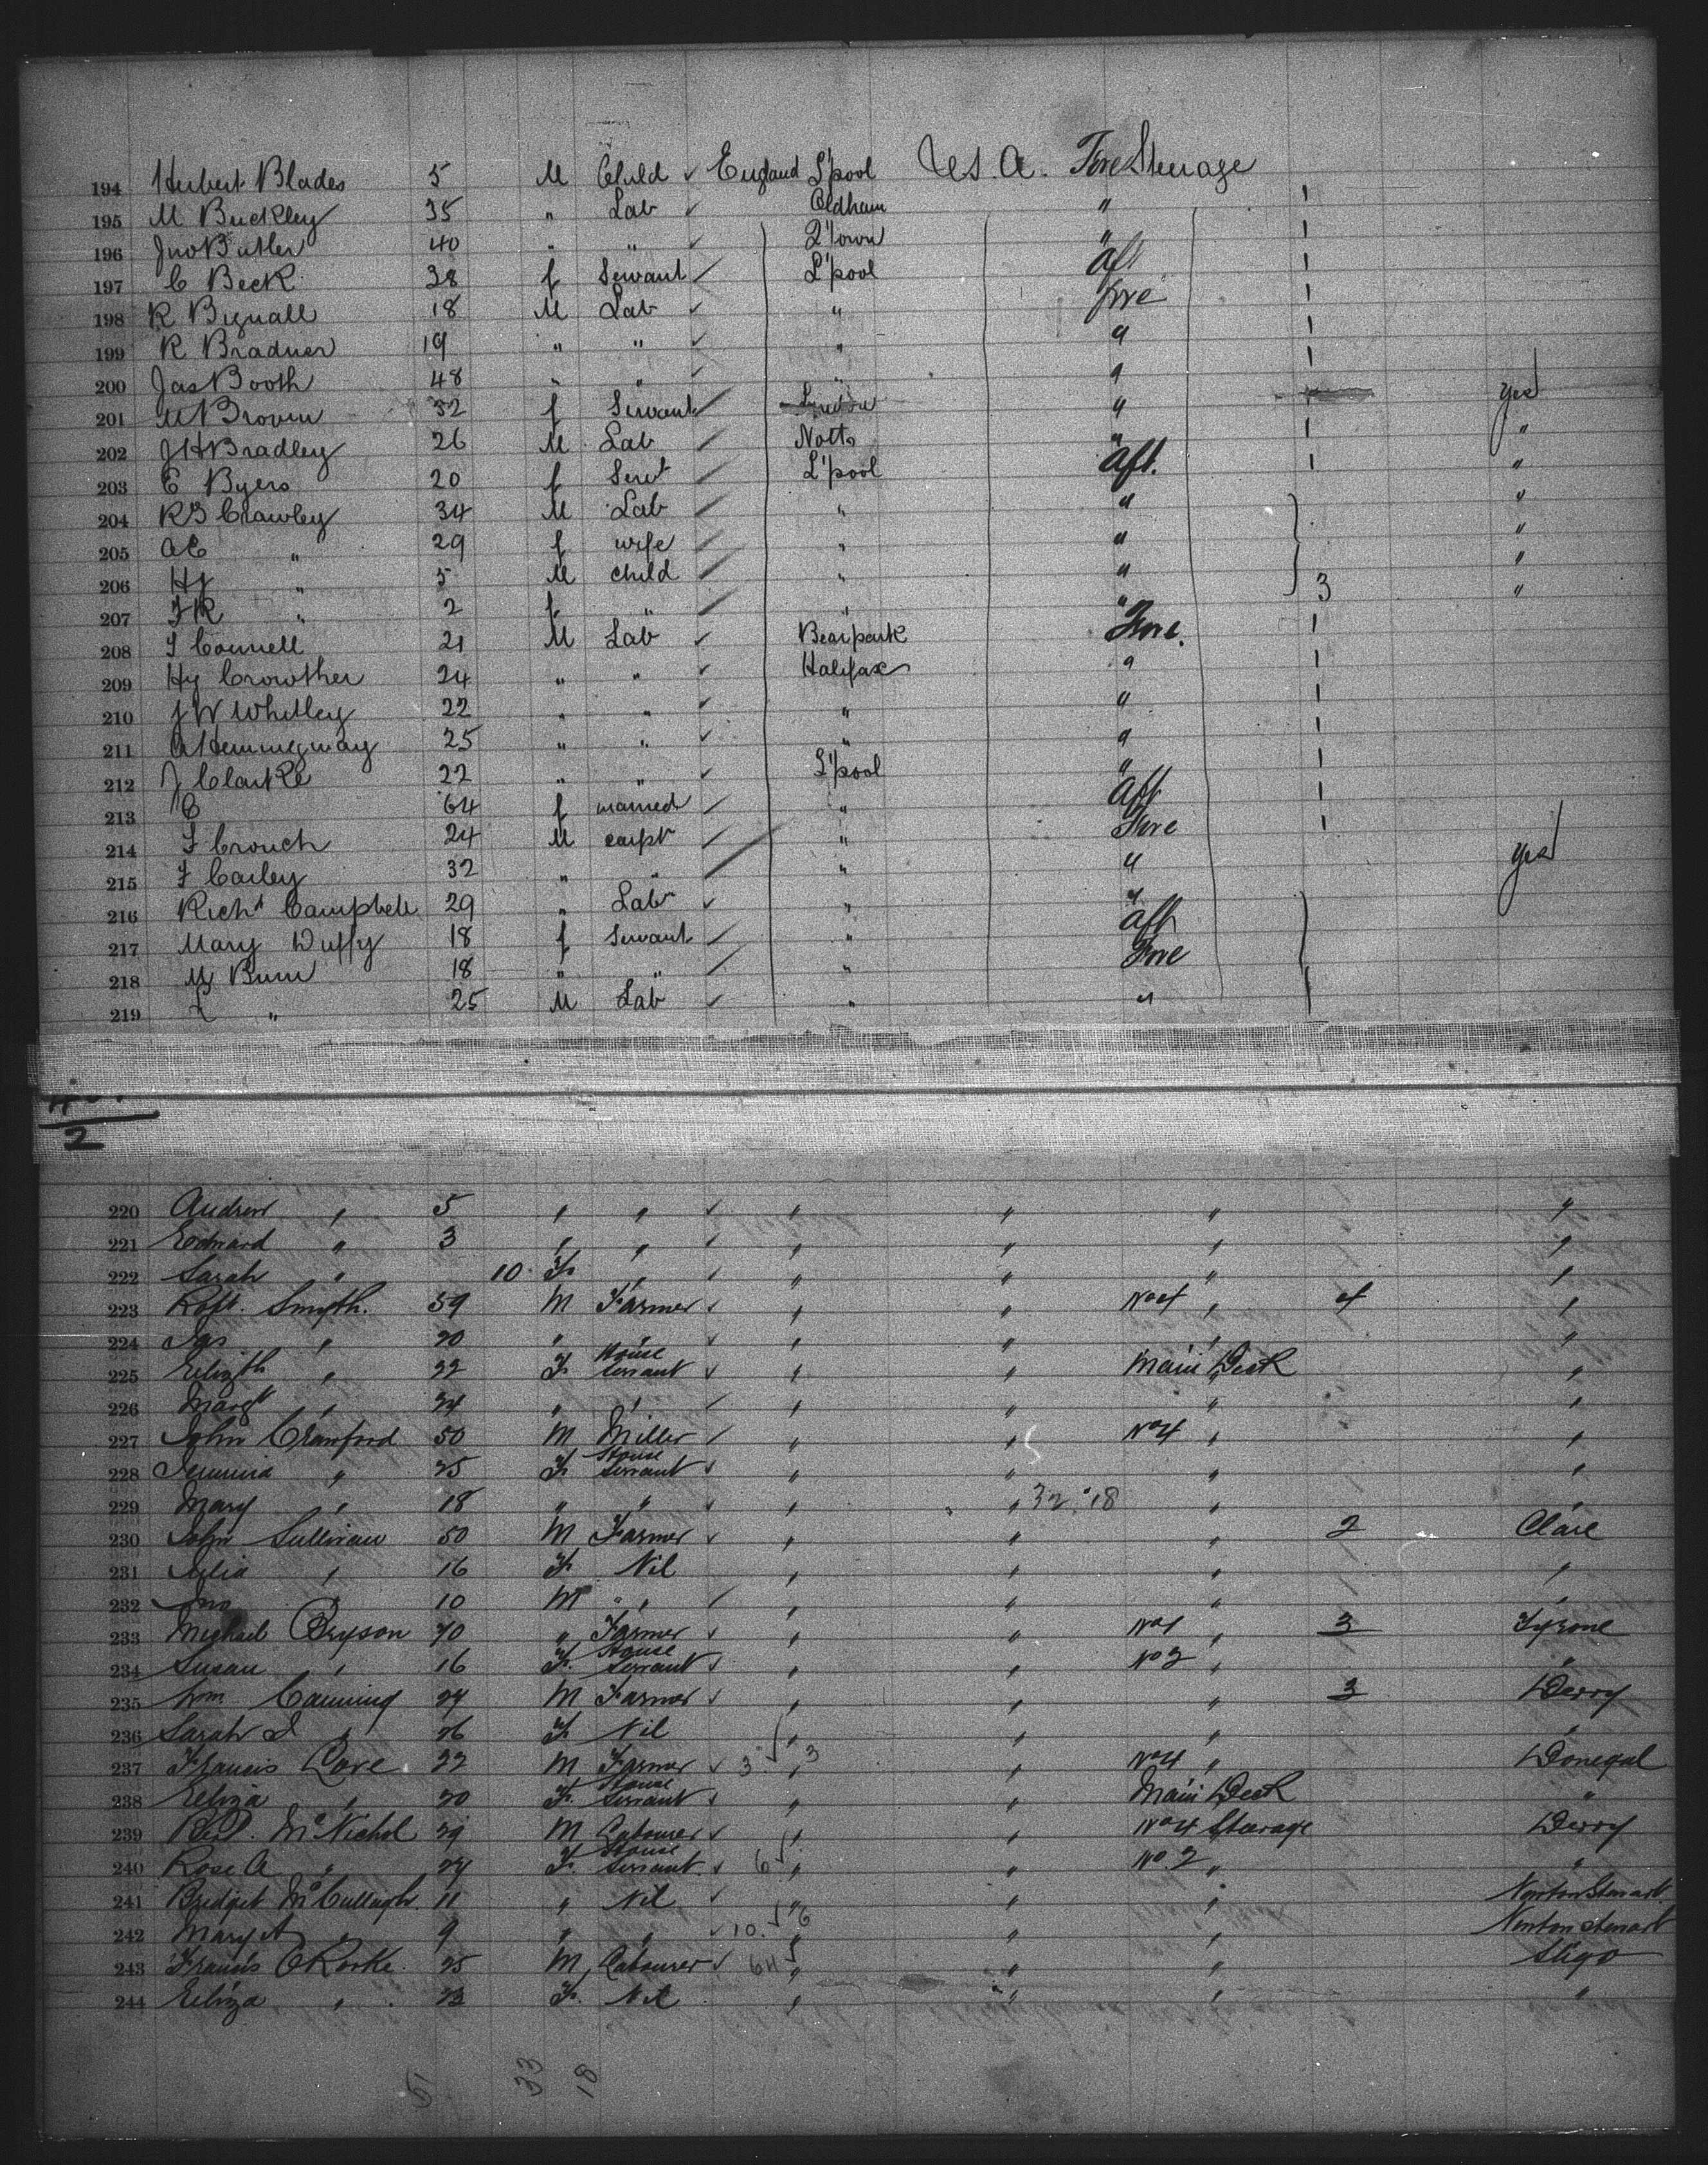 194 Herbert Blades 5 M Child ✓ England L'pool U.S.A. Fore Steerage
195 M Buckley 35 " Lab ✓ Oldham " 1
196 Jno Butler 40 " " ✓ Q'town " 1
197 C Beck 38 f Servant ✓ L'pool Aft 1
198 R Bignall 18 M Lab ✓ " Fore 1
199 R Bradner 19 " " ✓ " " 1
200 Jas Booth 48 " " ✓ " " 1
201 M Brown 32 f Servant ✓ " yes
202 J H Bradley 26 M Lab ✓ Notts " 1 "
203 E Byers 20 f Servt ✓ L'pool Aft. 1 "
204 R B Crawley 34 M Lab ✓ " " "
205 A E " 29 f wife ✓ " " "
206 Hy " 5 M child ✓ " " 3 "
207 " 2 f " ✓ " " "
208 Connell 21 M Lab ✓ Bearpark Fore. 1
209 Hy Crowther 24 " " ✓ Halifax " 1
210 J W Whitley 22 " " ✓ " " 1
211 A Hemmegway 25 " " ✓ " " 1
212 J Clarke 22 " " ✓ L'pool " 1
213 C 64 f married ✓ " Aft 1
214 F Crouch 24 M carpt ✓ " Fore 1
215 F Carley 32 " " ✓ " " yes
216 Richd Campbell 29 " Lab ✓ " "
217 Mary Duffy 18 f Servant ✓ " Aft
218 M Burn 18 " " ✓ " Fore
219 " 25 M Lab ✓ " "
2
220 Andrew " 5 " " ✓ " " " "
221 Edward " 3 " " ✓ " " " "
222 Sarah " 10 F " ✓ " " " "
223 Robt. Smyth. 59 M Farmer ✓ " " No 4 " 4 "
224 Jas " 20 " " ✓ " " " "
225 Elizth " 22 F House Servant ✓ " " Main Deck "
226 Margt " 24 " " ✓ " " " "
227 John Crawford 50 M Miller ✓ " " No 4 " "
228 Jemima " 25 F House Servant ✓ " " " "
229 Mary " 18 " " ✓ " " 32 18 " "
230 John Sullivan 50 M Farmer ✓ " " " 2 Clare
231 Julia " 16 F Nil " " " "
232 Jno " 10 M " ✓ " " " "
233 Michael Bryson 70 " Farmer ✓ " " No 1 " 3 Tyrone
234 Susan " 16 F. House Servant ✓ " " No 2 " "
235 Wm. Canning 24 M Farmer ✓ " " " 3 Derry
236 Sarah J " 26 F Nil " " " "
237 Francis Love 22 M Farmer ✓ 3 " 3 " No 4 " Donegal
238 Eliza " 20 F. House Servant ✓ " " Main Deck "
239 McNichol 29 M Labourer ✓ " " No 4 Steerage Derry
240 Rose A " 24 F. House Servant ✓ 6 " " No. 2 " "
241 Bridget McCullagh. 11 " Nil ✓ " " " Newton Stewart
242 Mary A " 9 " " ✓ 10 6 " " " Newton Stewart
243 Francis O'Rorke. 25 M Labourer ✓ 64 " " " Sligo
244 Eliza " 23 F. Nil " " " "
51 33 18